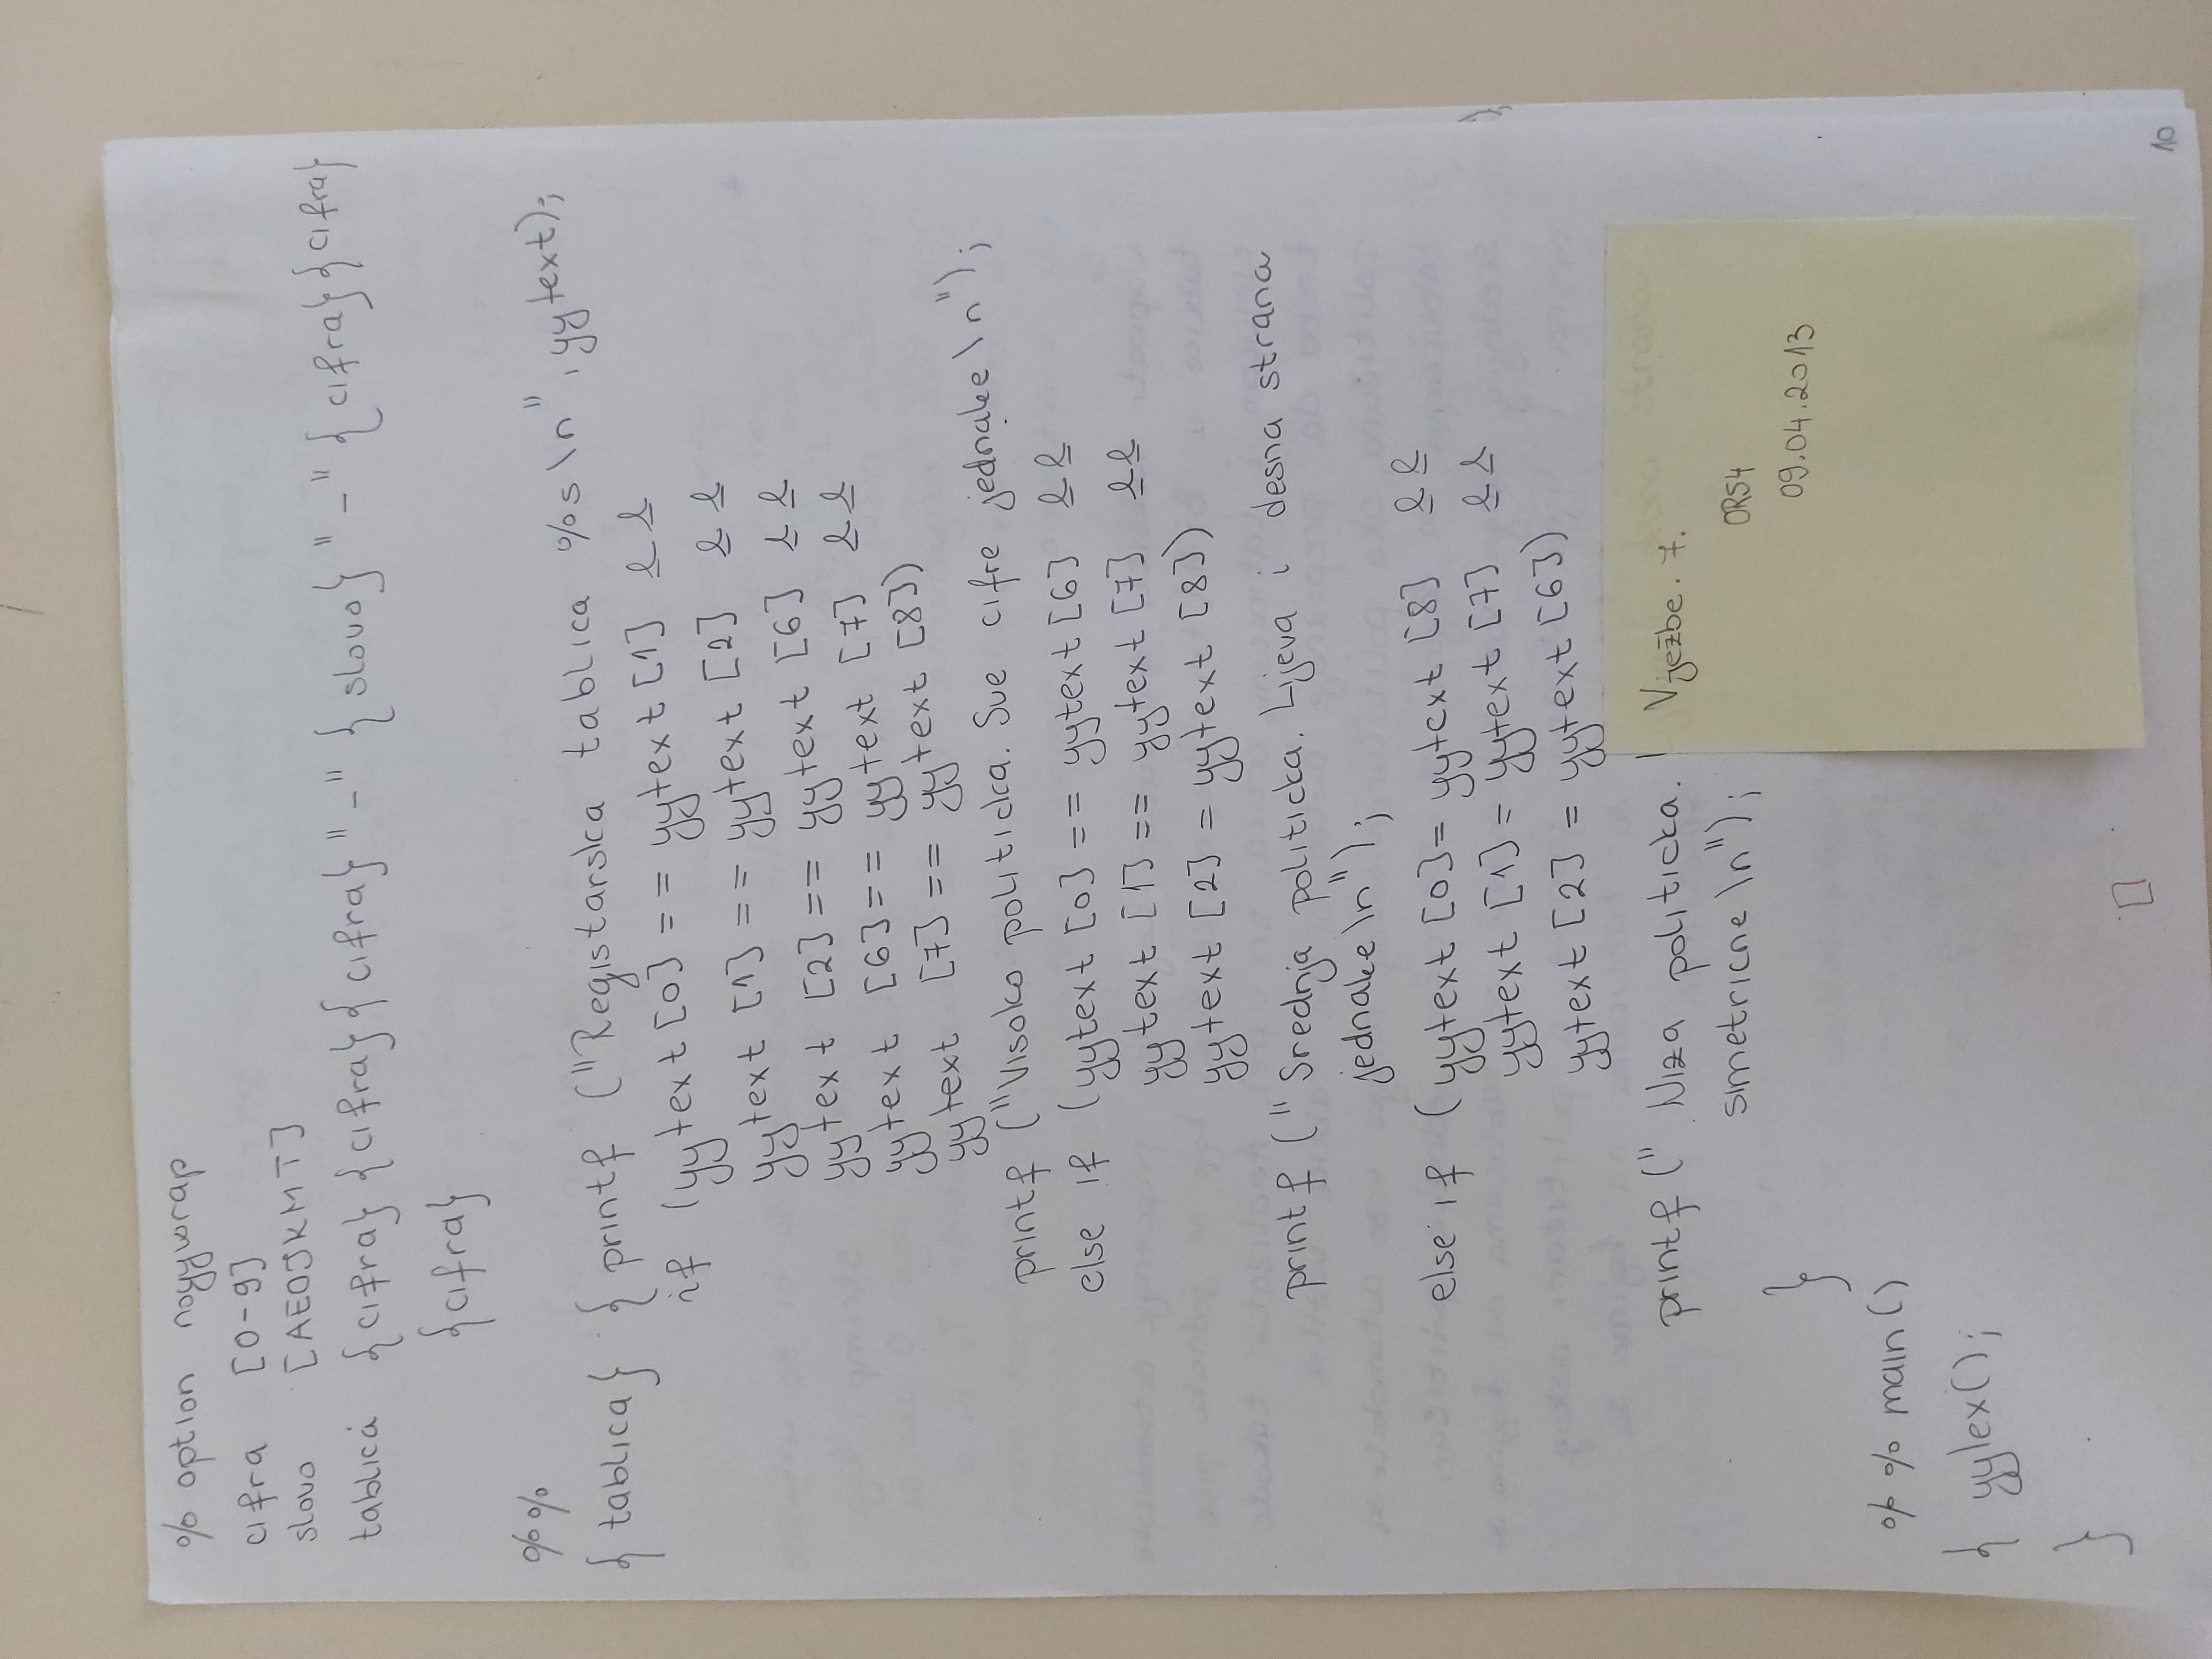 % option noyywrap
cifra [0-9]
slovo [AEOJKMT]
tablica {cifra} {cifra} {cifra} "-" {slovo} "-" {cifra} {cifra}
{cifra}
%%
{tablica} { printf ("Registarska tablica %s\n", yytext);
if (yytext [0] == yytext [1] &&
yytext [1] == yytext [2] &&
yytext [2] == yytext [6] &&
yytext [6] == yytext [7] &&
yytext [7] == yytext [8])
printf ("Visoko politicka. Sve cifre jednake \n");
else if (yytext [0] == yytext [6] &&
yytext [1] == yytext [7] &&
yytext [2] = yytext [8])
printf (" Srednja politicka. Lijeva i desna strana
jednake \n");
else if (yytext [0] = yytext [8] &&
yytext [1] = yytext [7] &&
yytext [2] = yytext [6])
printf (" Niza politicka.
simetricne \n");
}
%% main ()
{ yylex();
}
Vježbe. 7.
ORS4
09.04.2013
10